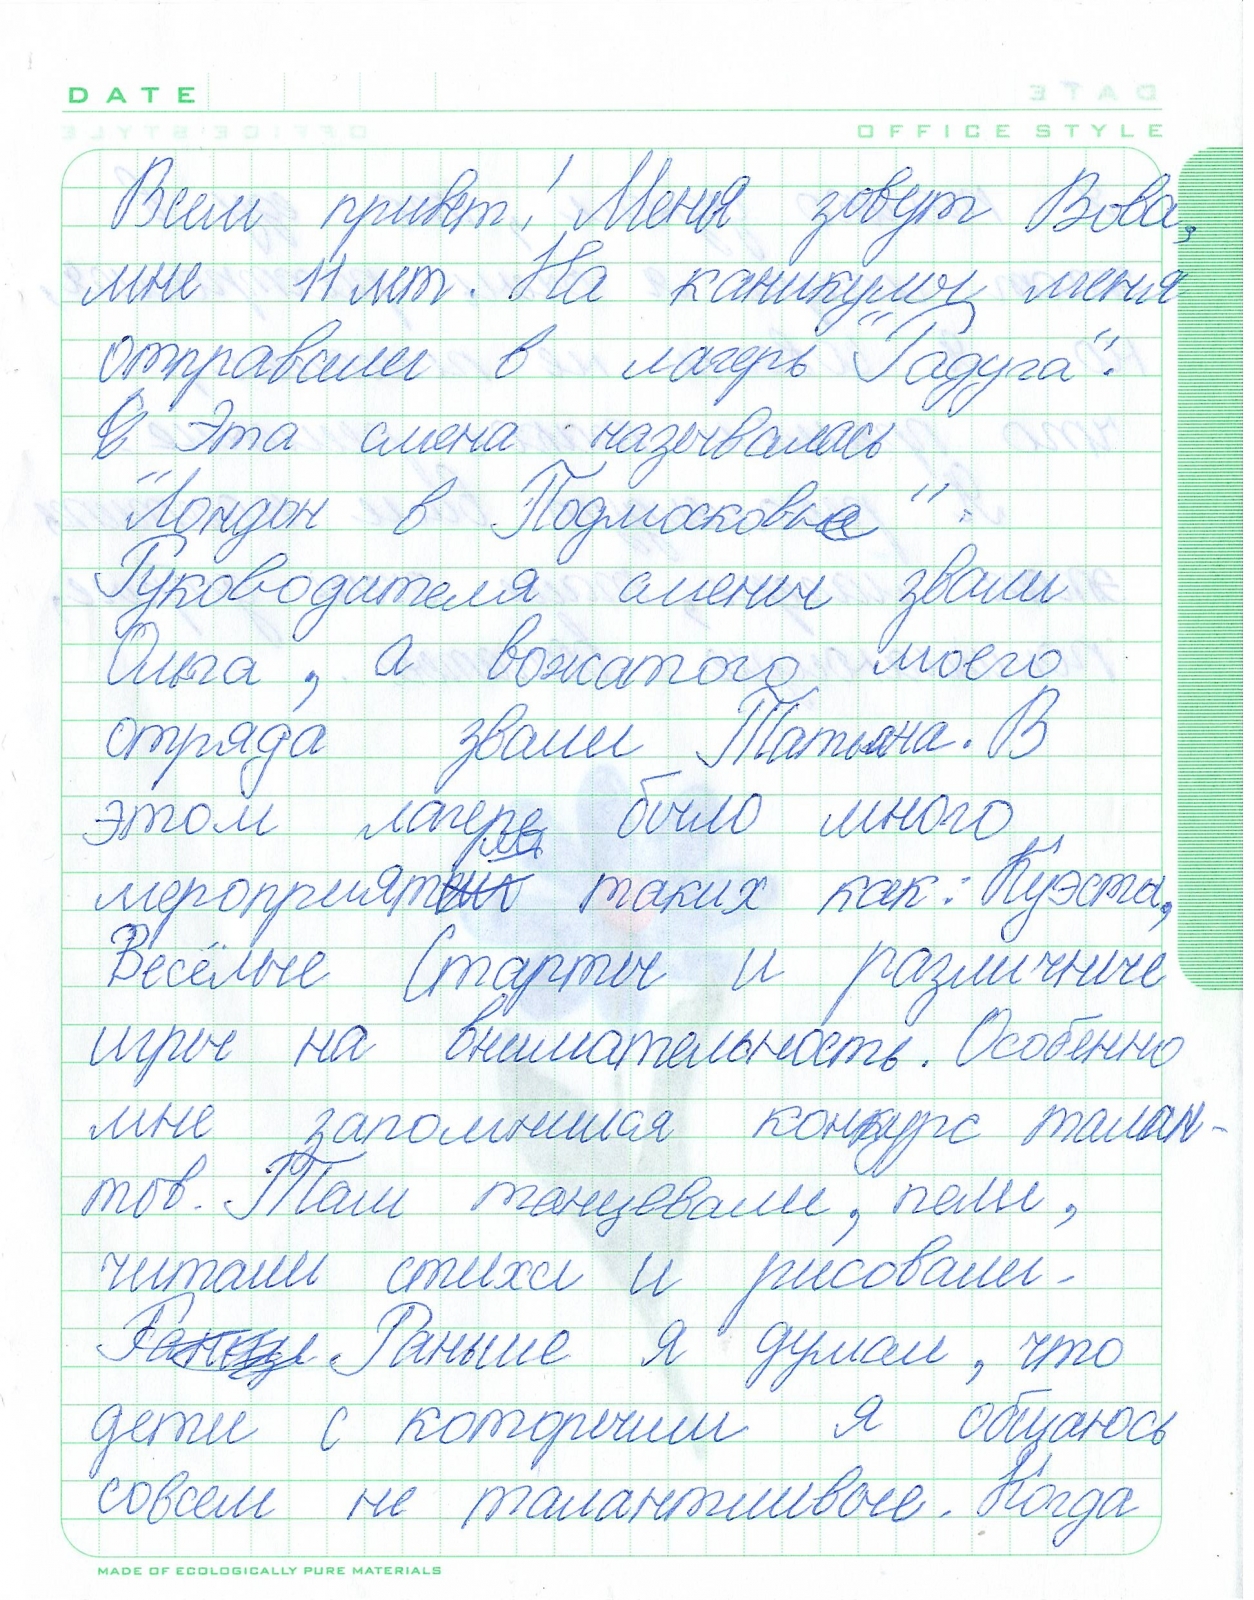 DATE
OFFICE STYLE
Всем привет! Меня зовут Вова,
мне 11 лет. На каникулы меня
отправили в лагерь "Радуга".
Эта смена называлась
"Лондон в Подмосковье".
Руководителя смены звали
Ольга, а вожатого моего
отряда звали Татьяна. В
этом лагере было много
мероприят таких как: Куэсты,
ий
Весёлые Старты и различные
игры на внимательность. Особенно
мне запомнился конкурс талан-
тов. Там танцевали, пели,
читали стихи и рисовали.
Раньше я думал, что
дети с которыми я общаюсь
совсем не талантливые. Когда
MADE OF ECOLOGICALLY PURE MATERIALS